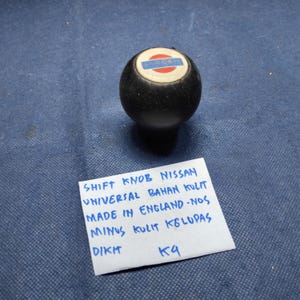 SHIFT KNOB NISSAN
UNIVERSAL BAHAN KULIT
MADE IN ENGLAND-NOS
MINUS KULIT KELUPAS
DIKIT K4